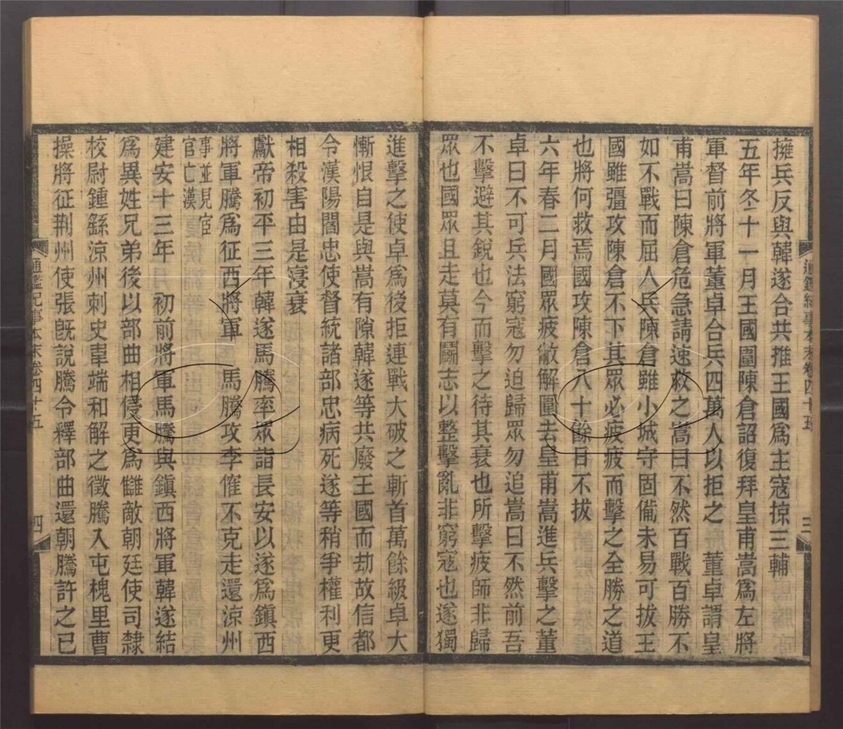 擁兵反與韓遂合共推王國爲主寇掠三輔
五年冬十一月王國圍陳倉詔復拜皇甫嵩爲左將
軍督前將軍董卓合兵四萬人以拒之　董卓謂皇
甫嵩曰陳倉危急請速救之嵩曰不然百戰百勝不
如不戰而屈人兵陳倉雖小城守固備未易可拔王
國雖彊攻陳倉不下其眾必疲疲而擊之全勝之道
也將何救焉國攻陳倉八十餘日不拔
六年春二月國眾疲敝解圍去皇甫嵩進兵擊之董
卓曰不可兵法窮寇勿迫歸眾勿追嵩曰不然前吾
不擊避其銳也今而擊之待其衰也所擊疲師非歸
眾也國眾且走莫有鬭志以整擊亂非窮寇也遂獨
進擊之使卓爲後拒連戰大破之斬首萬餘級卓大
慚恨自是與嵩有隙韓遂等共廢王國而劫故信都
令漢陽閻忠使督統諸部忠病死遂等稍爭權利更
相殺害由是寖衰
獻帝初平三年韓遂馬騰率眾詣長安以遂爲鎮西
將軍騰爲征西將軍　馬騰攻李傕不克走還涼州
事並見宦
官亡漢
建安十三年　初前將軍馬騰與鎮西將軍韓遂結
爲異姓兄弟後以部曲相侵更爲讎敵朝廷使司隸
校尉鍾繇涼州刺史韋端和解之徵騰入屯槐里曹
操將征荆州使張旣說騰令釋部曲還朝騰許之已
通鑑紀事本末卷四十五
三
通鑑紀事本末卷四十五
四